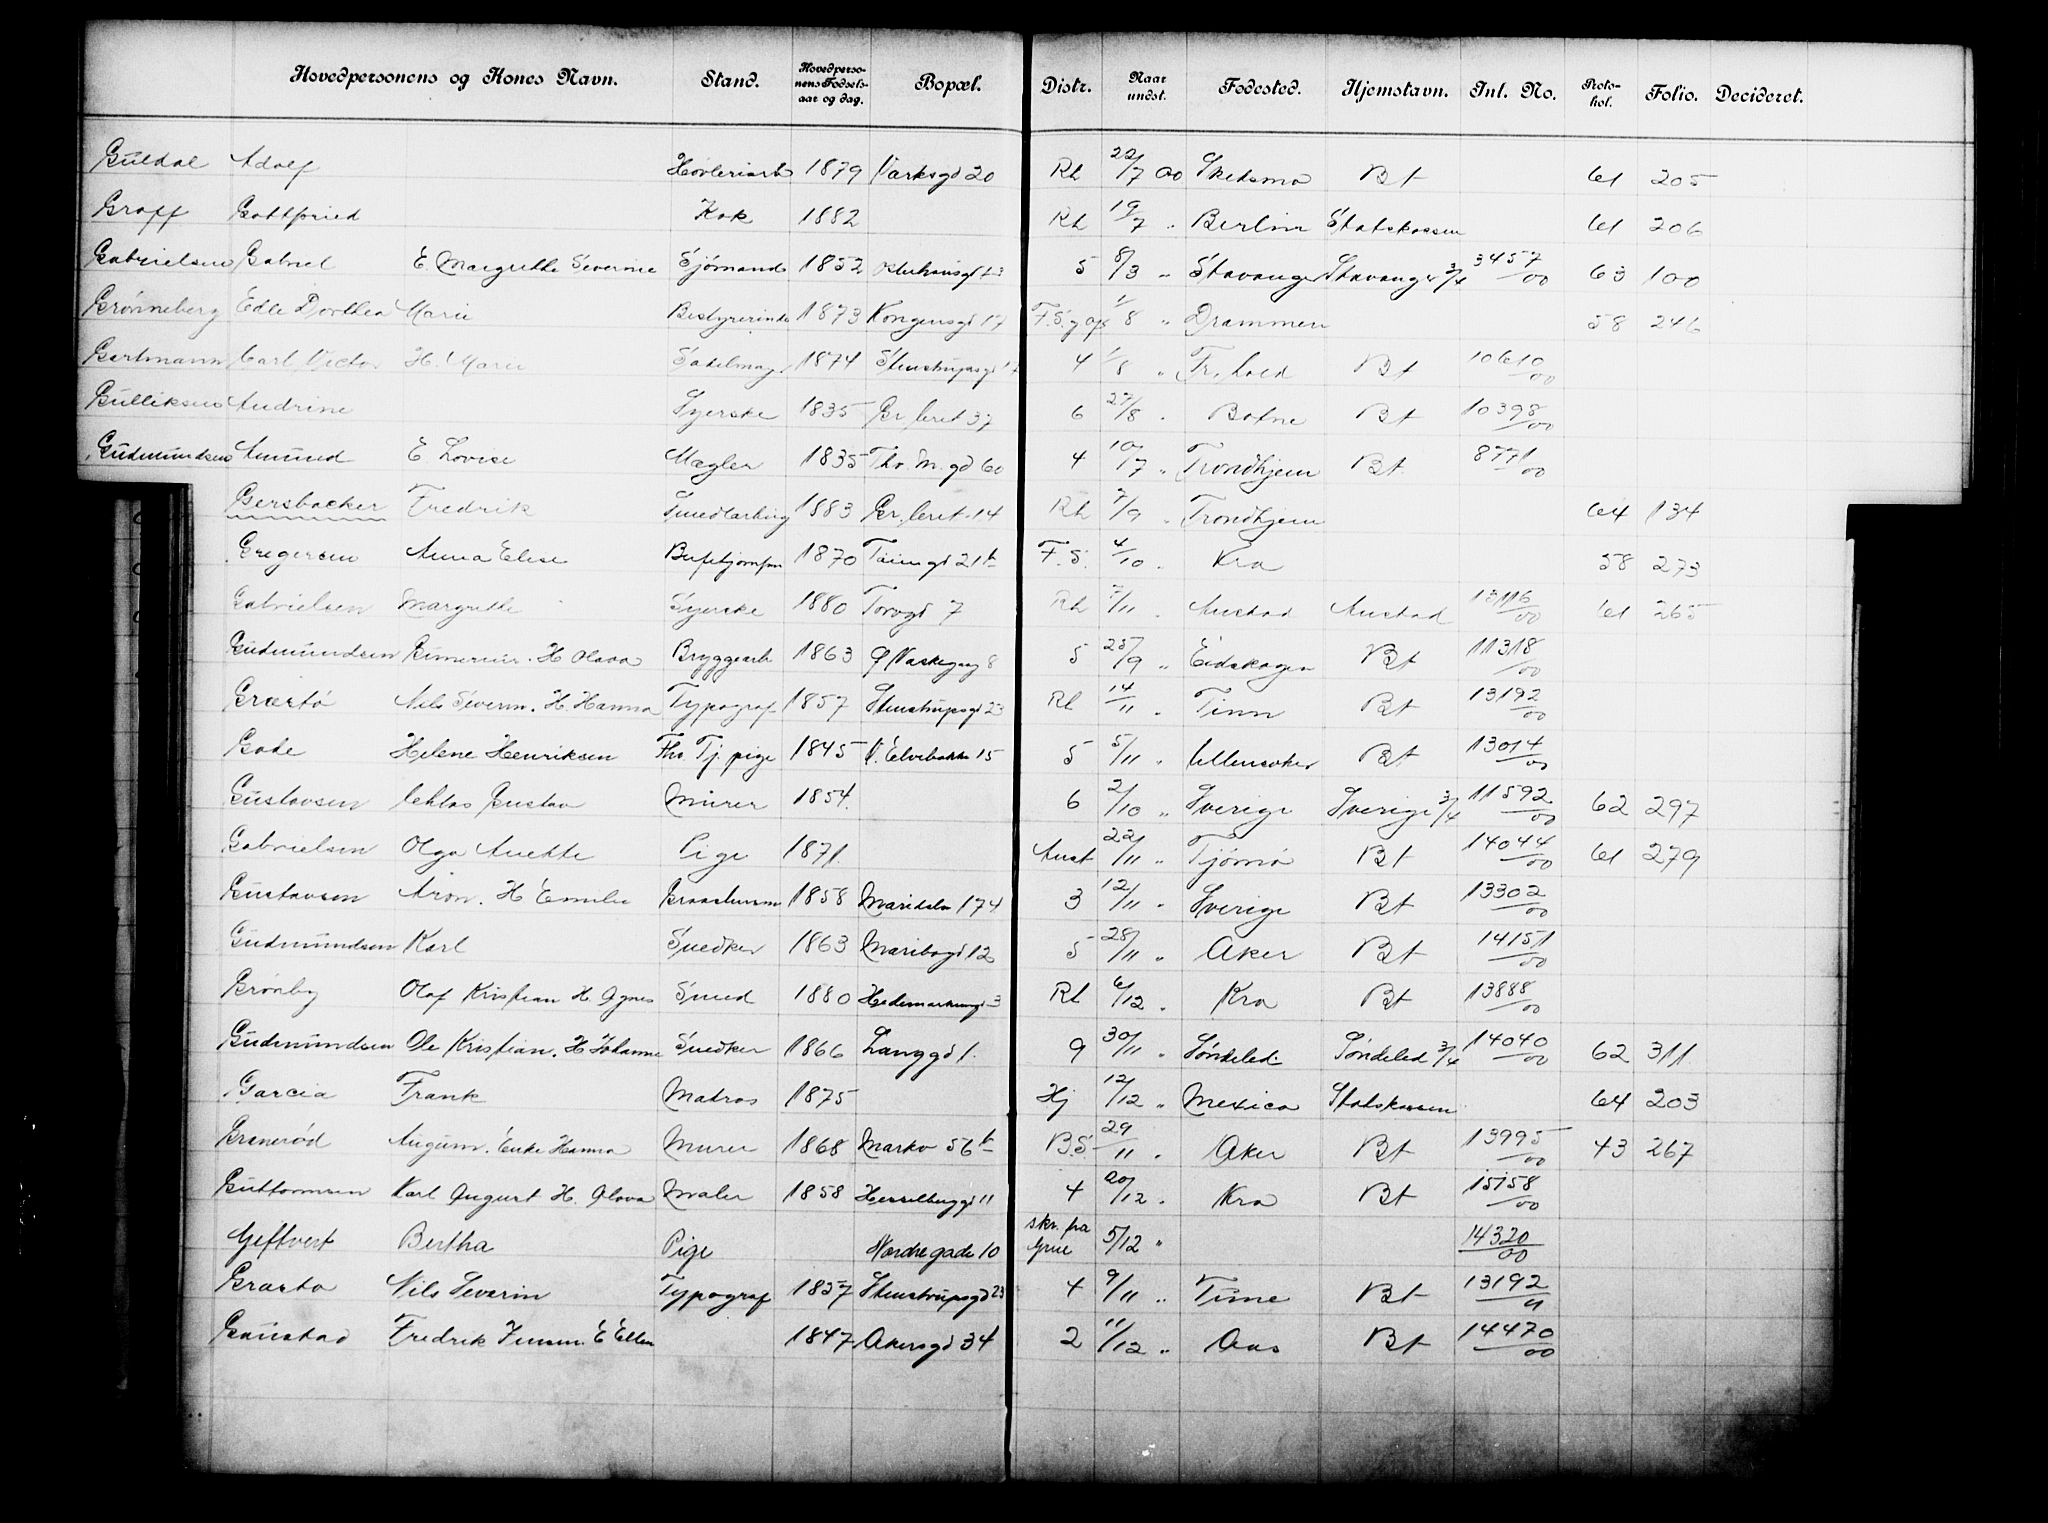 Hovedpersonens og Kones Navn. Stand. Hovedperso-nens Fødsels-aar og dag. Bopæl. Distr. Naar undst. Fødested. Hjemstavn. Int. No. Proto-kol. Folio. Decideret.
Guldal Adolf Høvleriarb 1879 Værksgd 20 Rh 22/7 00 Skedsmo Bt 61 205
Graff Gottfried Kok 1882 Rh 19/7 " Berlin Statskassen 61 206
Gabrielsen Gabriel E Margrethe Severine Sjømand 1852 5 8/3 " Stavanger Stavanger 3/4 3457/00 63 100
Grønneberg Edle Dorthea Marie Bestyrerinde 1873 Kongensgd 17 1/8 " Drammen 58 246
Gertmann Carl Victor H. Marie Sadelmag 1874 Stenstrupsgd 17 4 1/8 " Fr.hald Bt 10610/00
Gulliksen Andrine Syerske 1835 Gr.leret 37 6 27/8 " Botne Bt 10398/00
Gudmundsen Amund E Lovise Mægler 1835 Thv. M. gd 60 4 10/7 " Trondhjem Bt 8771/00
Gersbacker Fredrik Smedlærling 1883 Gr.leret 14 Rh 7/9 " Trondhjem 64 134
Gregersen Anna Elise 1870 Tøiengd 21b F.S. 4/10 " Kra 58 273
Gabrielsen Margrethe Syerske 1880 Torvgd 7 Rh 7/11 " Anstad Anstad 13116/00 61 265
Gudmundsen H Olava Bryggearb 1863 Ø Vaskegang 8 5 25/9 " Eidskogen Bt 11318/00
Græstø Nils Severin. H. Hanna Typograf 1857 Stenstrupsgd 23 Rh 14/11 " Tinn Bt 13192/00
Gade Helene Henriksen Fhv Tj. pige 1845 V. Elvebakke 15 5 5/11 " Ullensaker Bt 13014/00
Gustavsen Gustav Murer 1854. 6 2/10 " Sverige Sverige 3/4 11592/00 62 297
Gabrielsen Olga Anette Pige 1871. Aust 22/11 " Tjømø Bt 14044/00 61 279
Gustavsen Aron. H Emilie 1858 Maridalsv 174 3 12/11 " Sverige Bt 13302/00
Gudmundsen Karl Snedker 1863 Maribogd 12 5 28/11 " Aker Bt 14151/00
Grønby Olaf Kristian H. Agnes Smed 1880 Hedemarkensgd 3 Rh 6/12 " Kra Bt 13888/00
Gudmundsen Ole Kristian. H. Johanne Snedker 1866 Langgd 1. 9 30/11 " Søndeled Søndeled 3/4 14040/00 62 311.
Garcia Frank Matros 1875 Hj 12/12 " Mexico Statskassen 64 203
Granerød August. Enke Hanna Murer 1868 Markv 56b B.S 29/11 " Aker Bt 13995/00 43 267
Guttormsen Karl August H. Olava Maler 1858 Hesselberggd 11 4 20/12 " Kra Bt 15158/00
Geftvert Bertha Pige Nordregade 10 skr. fra Grue 5/12 " 14320/00
Græsto Nils Severin Typograf 1857 Stenstrupsgd 23 4 9/11 " Time Bt 13192/11
Gaustad Fredrik Jensen E Ellen 1847 Akersgd 34 2 11/12 " Aas Bt 14470/00